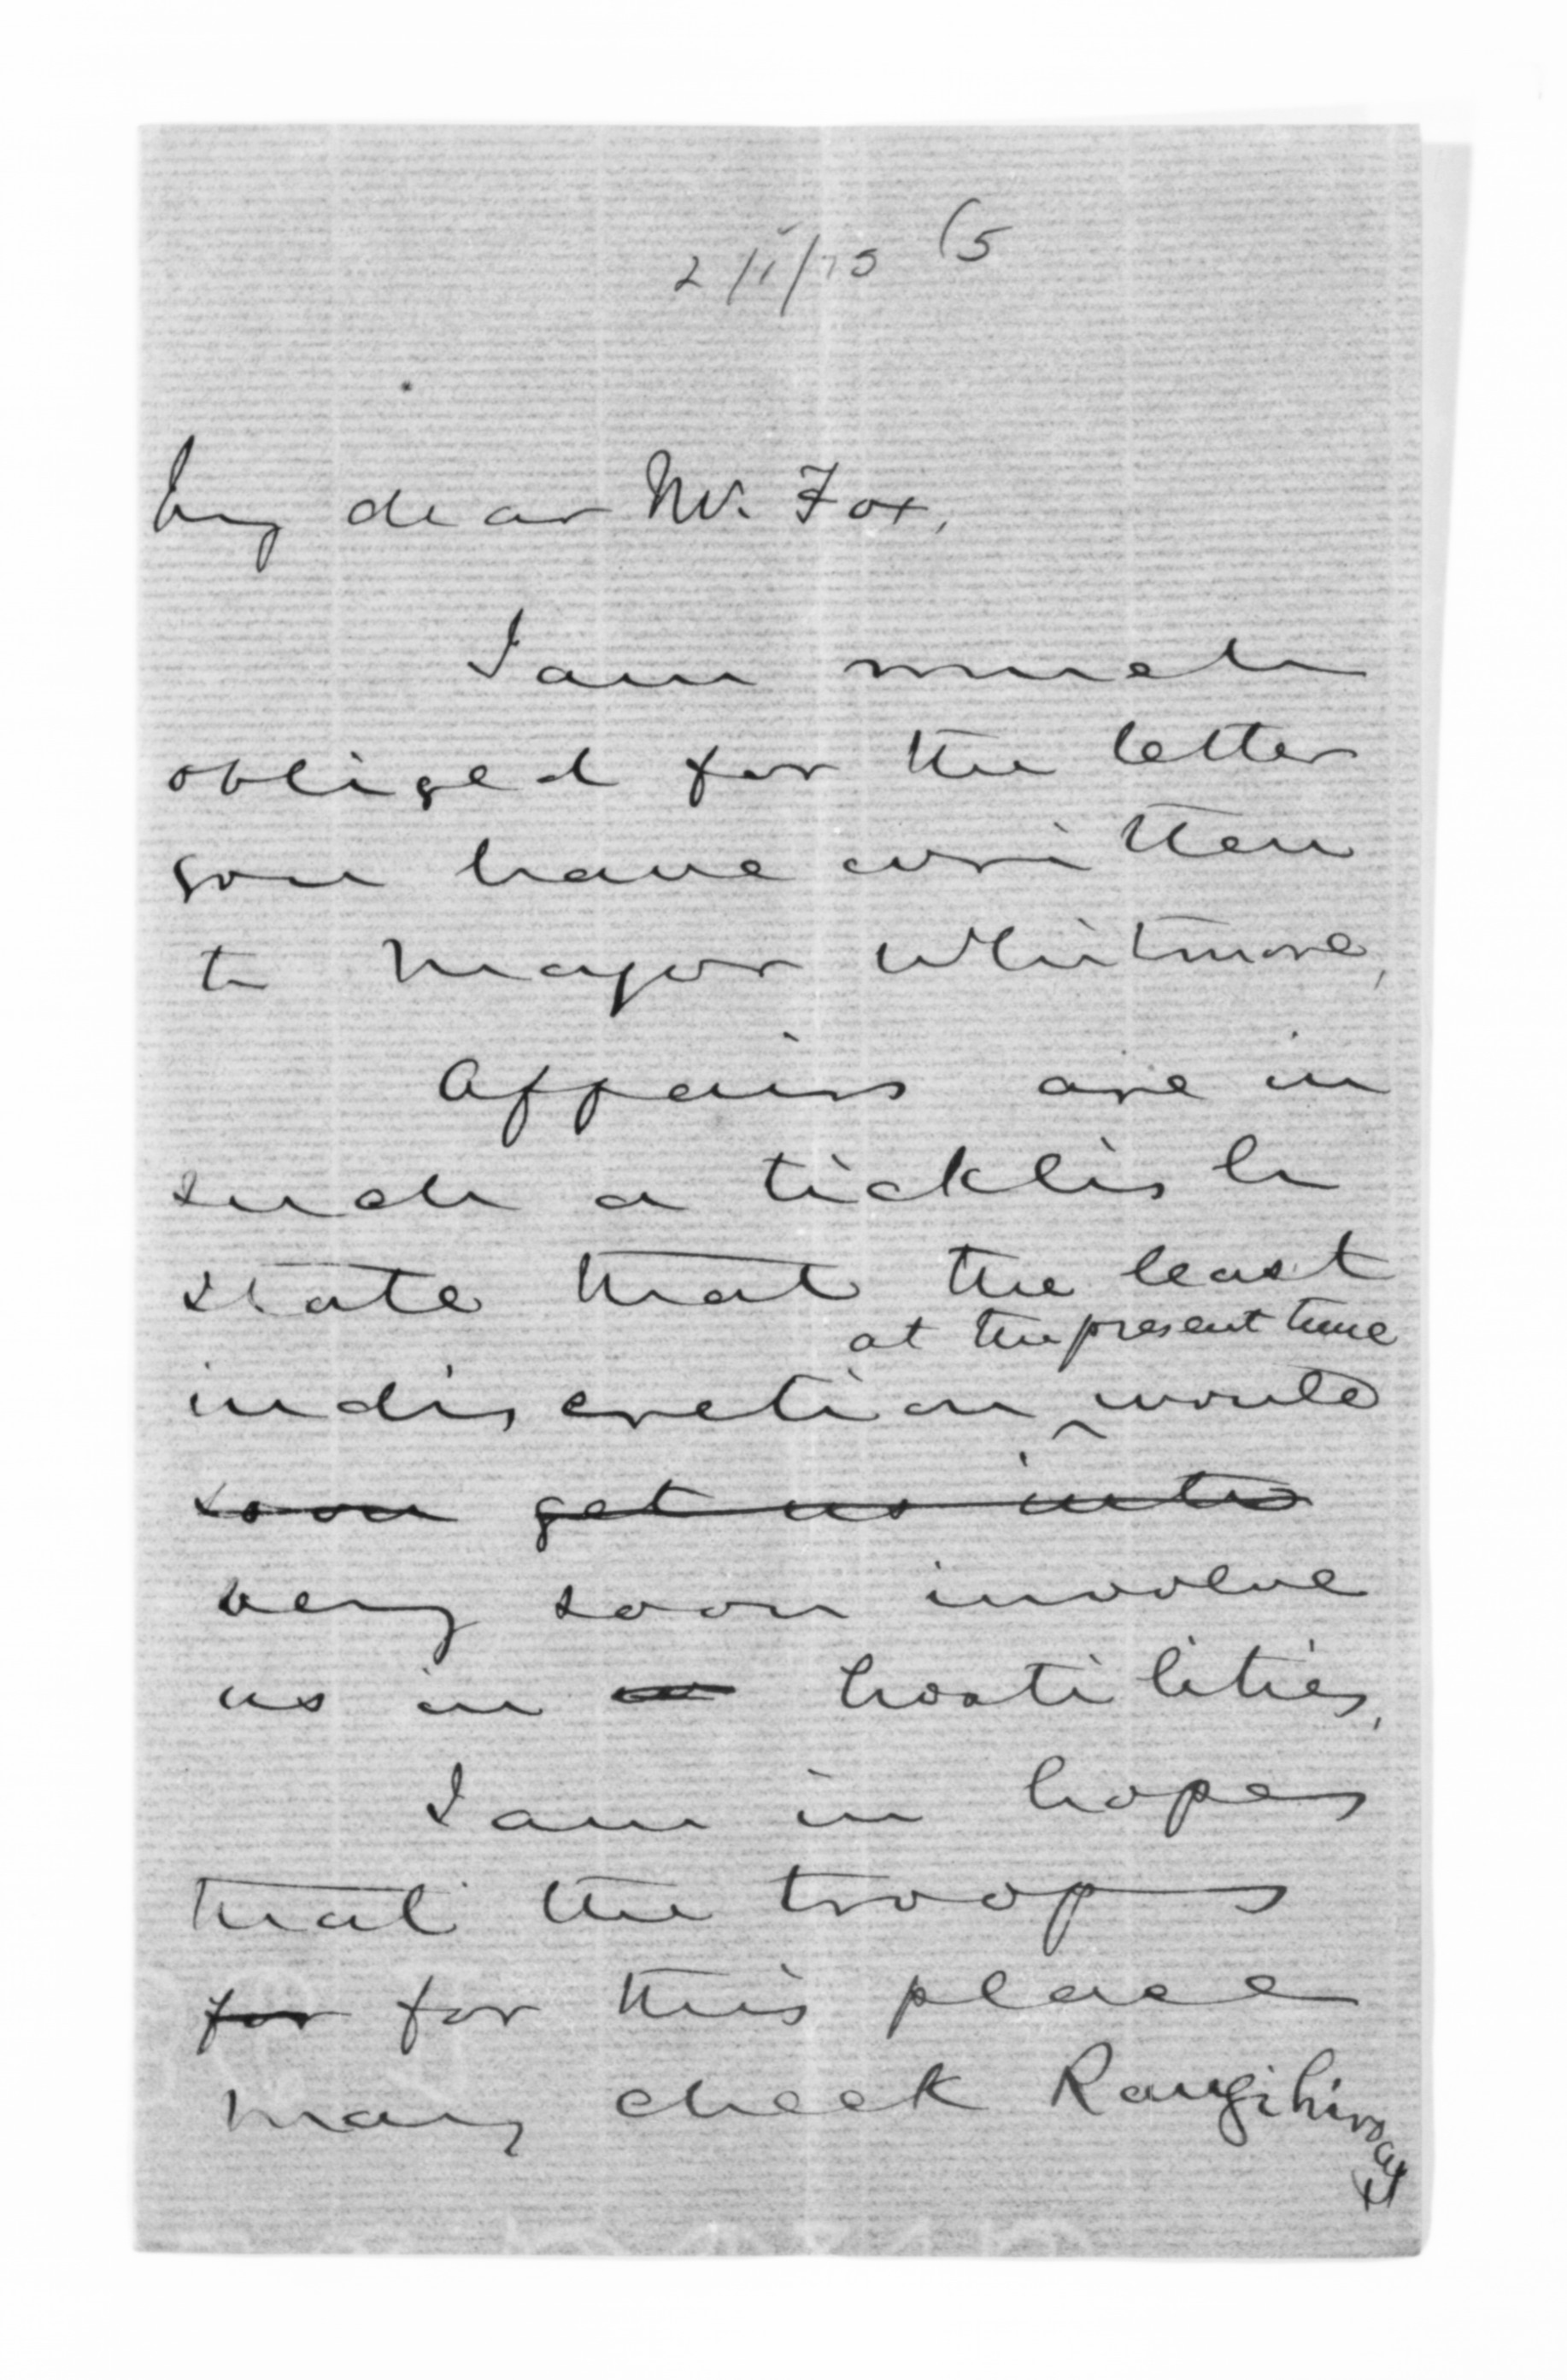 (5
My dear Mr. Fox,
I am much
obliged for the letter
you have written
to Major Whitmore,
Affairs are in
such a ticklish
state that the least
at the present time
indiscretion ^ would
soon get us into
very soon involve
us in hostilities,
I am in hopes
that the troops
for for this place
may check Rangihiroa